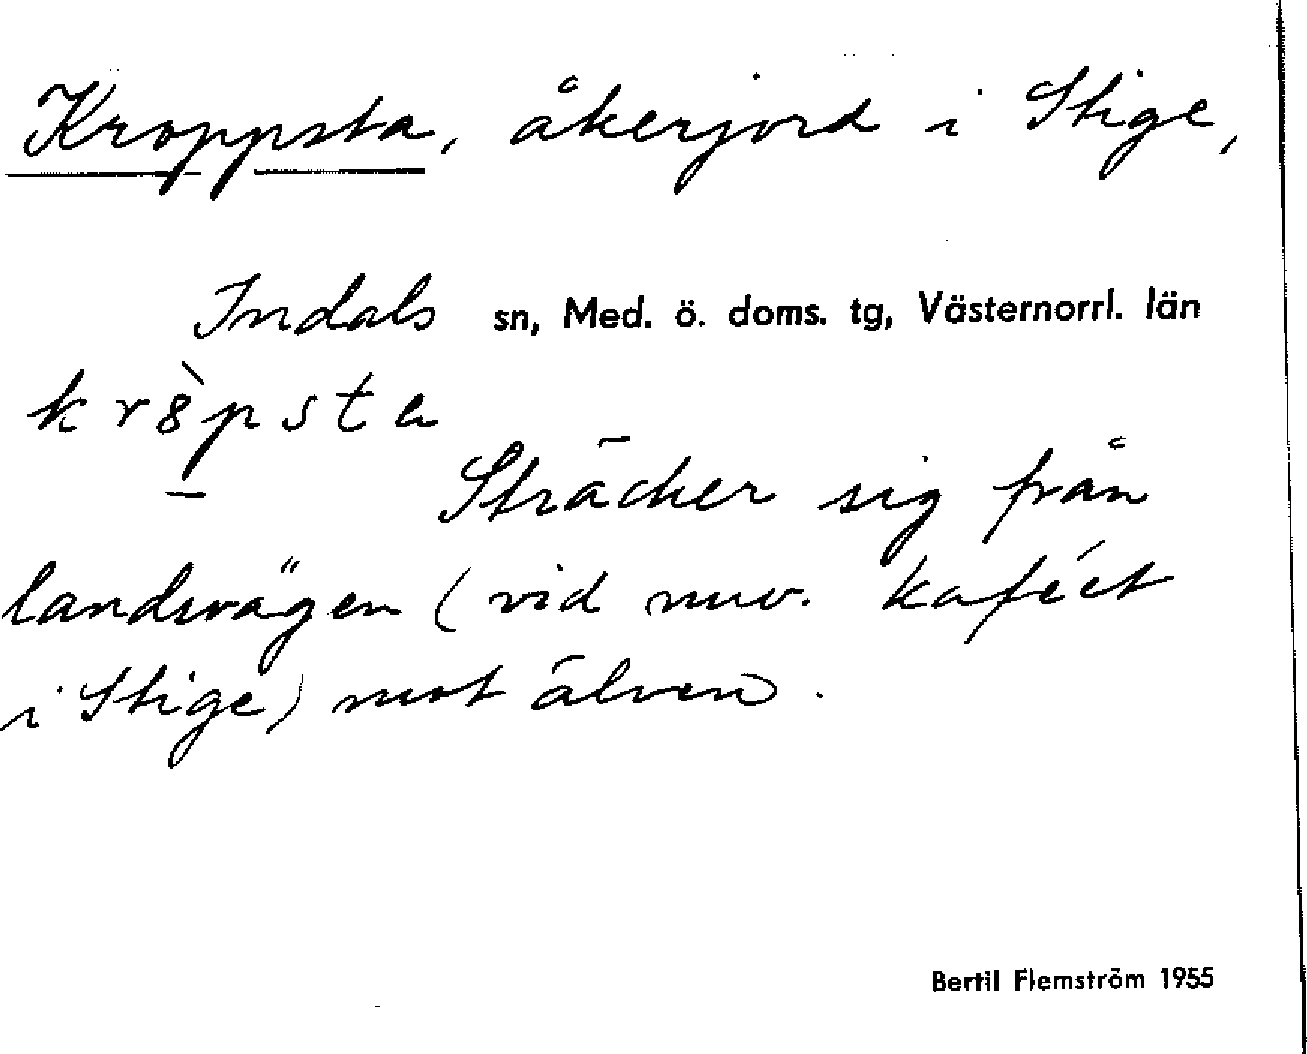 Kroppsta, åkerjord i Stige,
Indals sn, Med. ö. doms. tg, Västernorrl. län
kr8̀p̠sta
Sträcker sig från
landsvägen (vid nuv. kaféet
i Stige) mot älven.
Bertil Flemström 1955